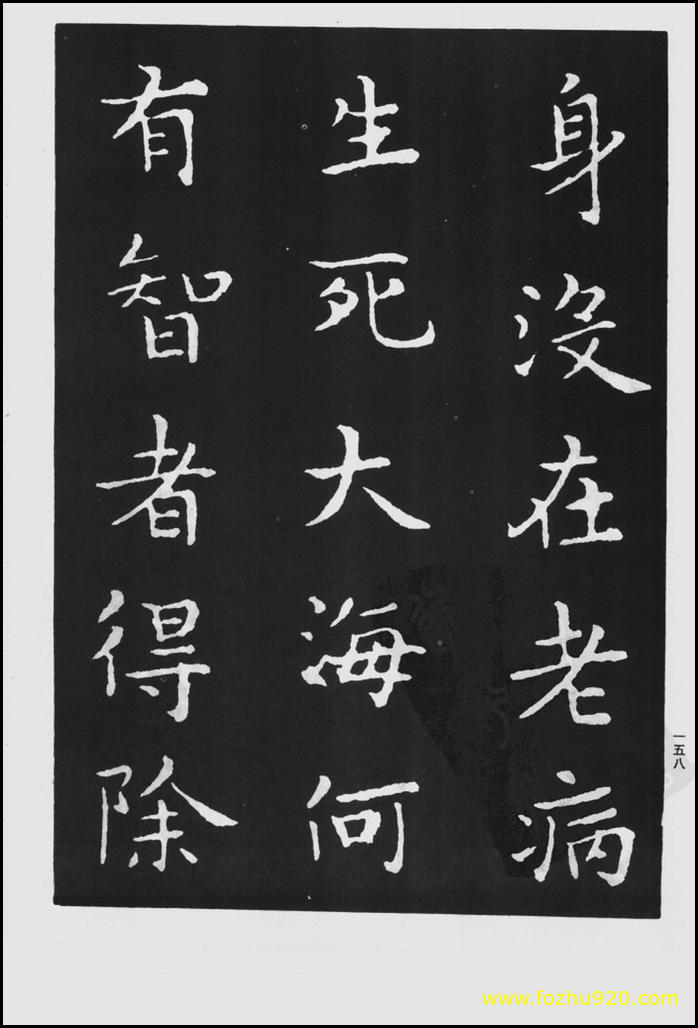 身沒在老病
生死大海何
有智者得除
一五八
www.fozhu920.com